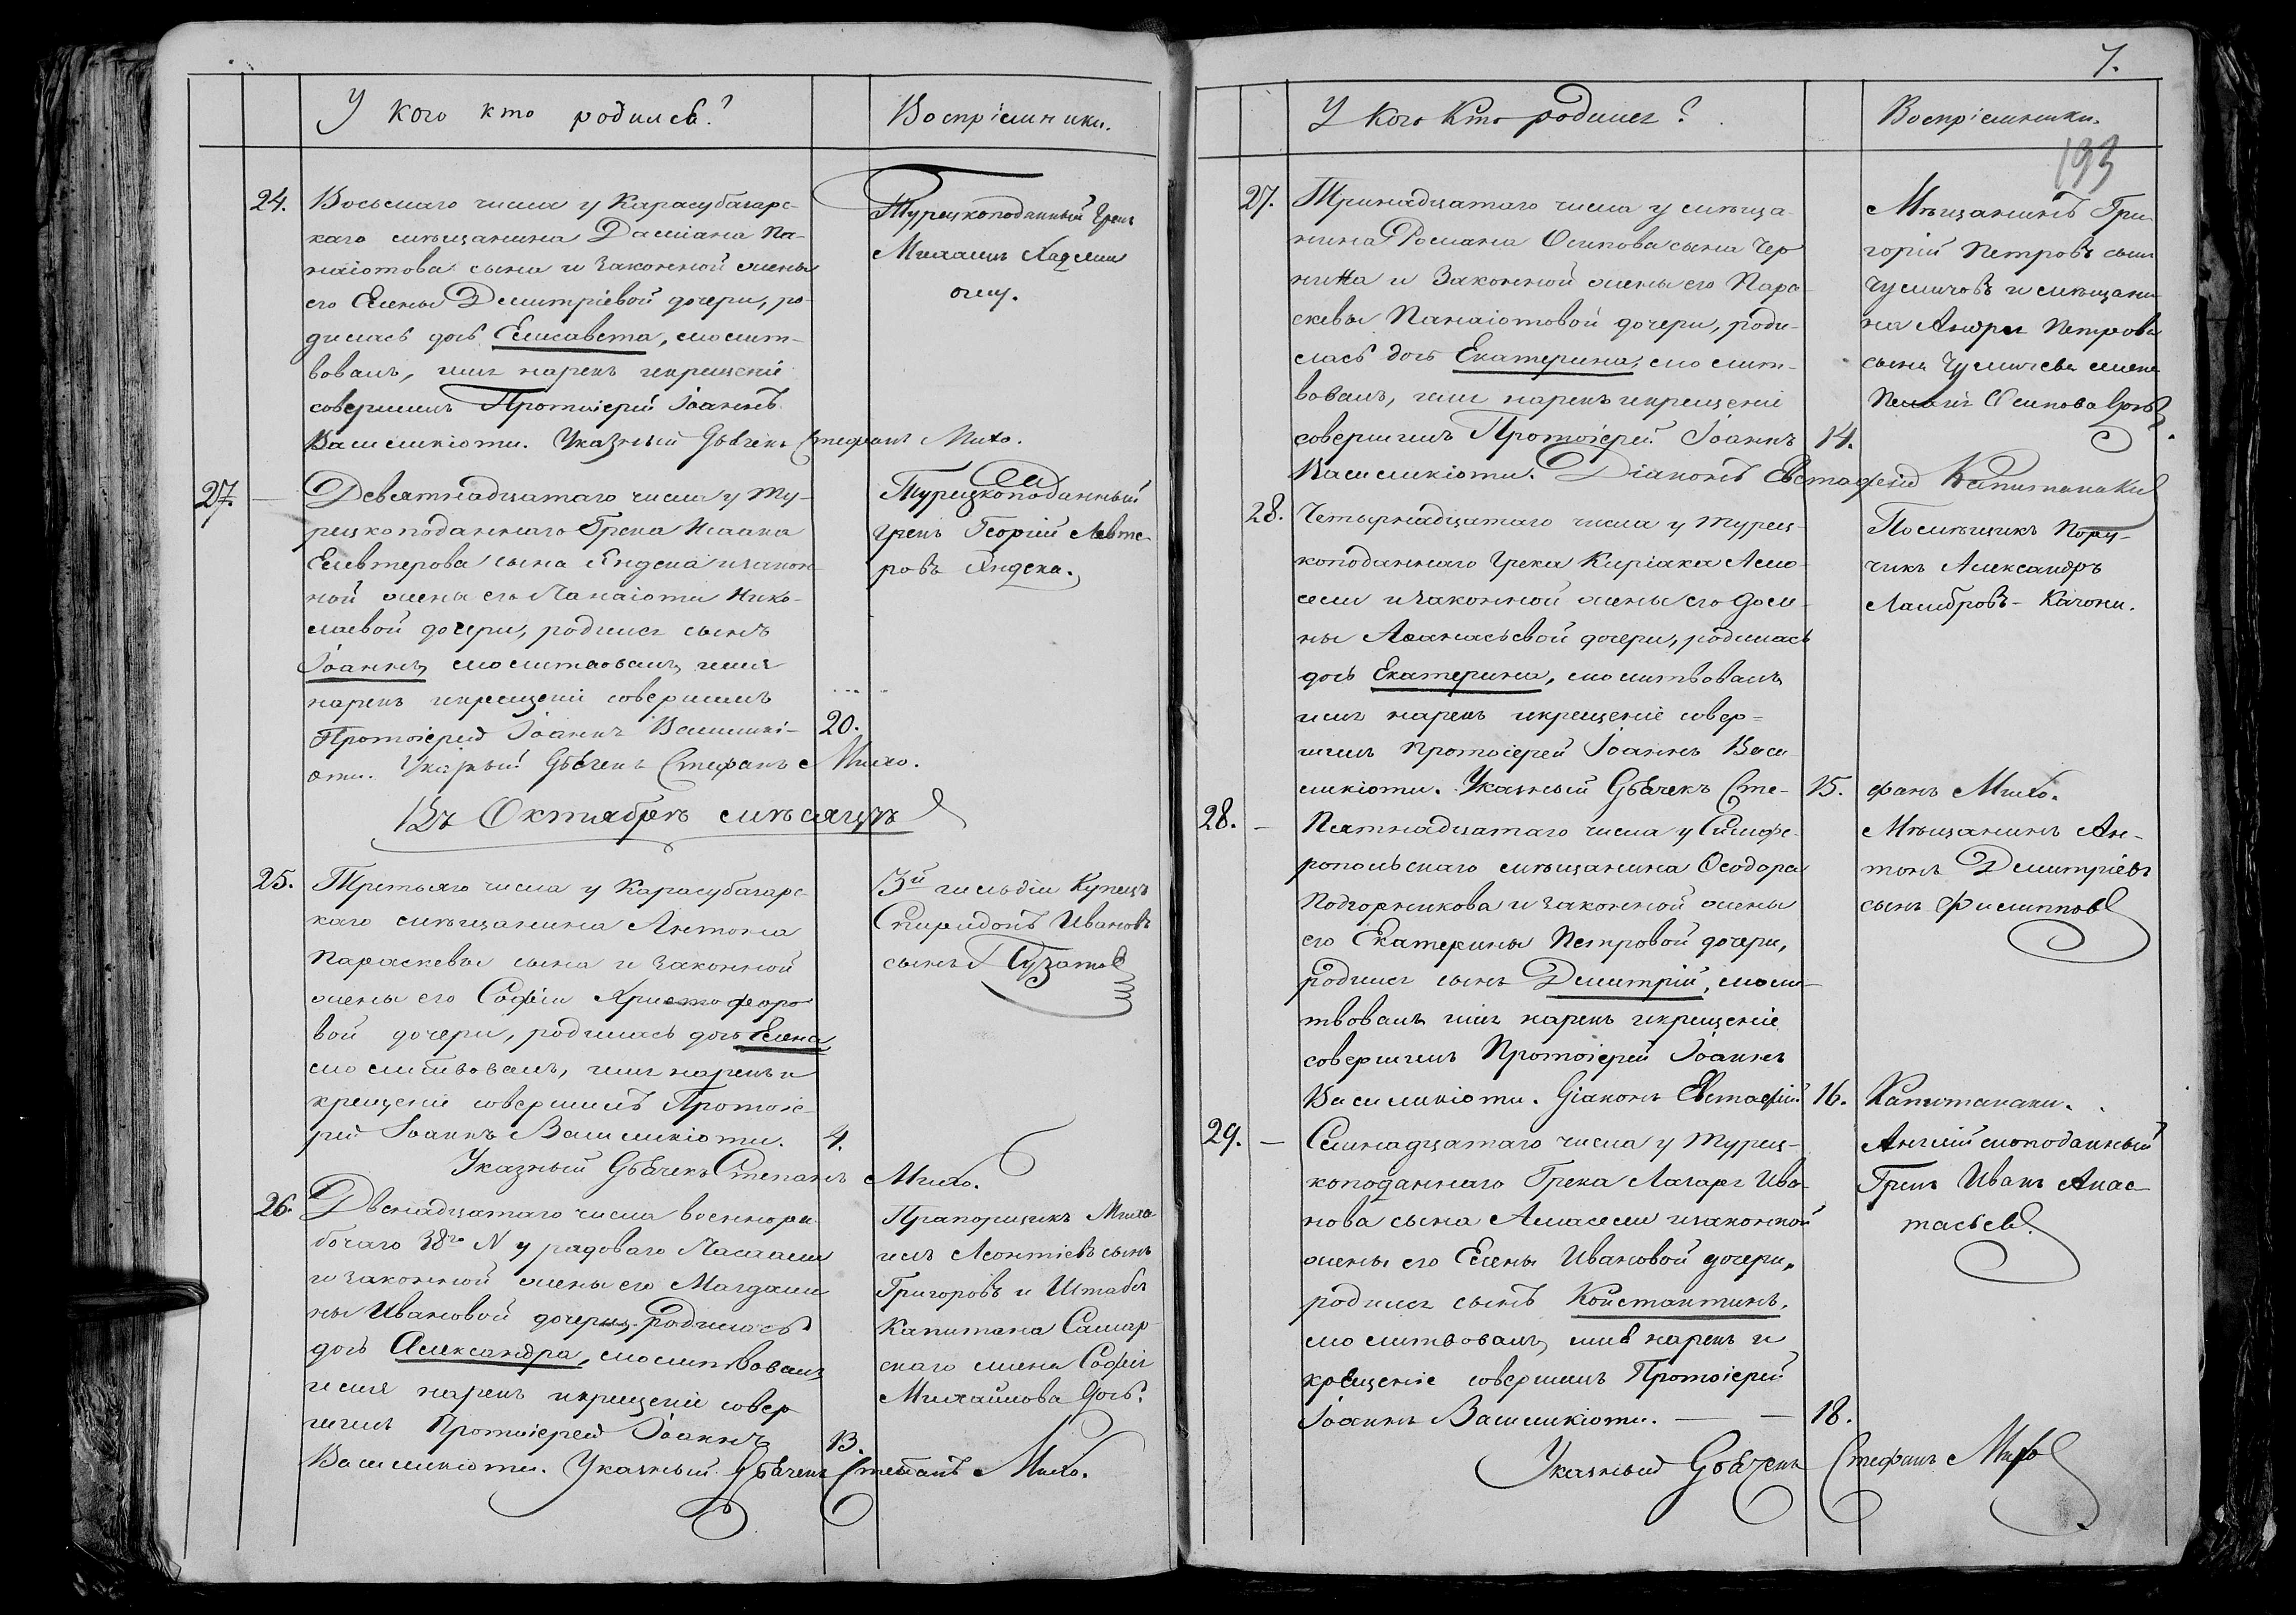 У кого кто родился?
Воспріемники.
24. Восьмаго числа у Карасубазарс-
каго мѣщанина Даміана Па-
наіотова сына и законной жены
его Елены Димитріевой дочери, ро-
дилась дочь Елисавета, молит-
вовалъ, имя нарекъ и крещеніе
совершилъ Протоіерей Іоаннъ
Василикіоти. Указный Дьячекъ Стефанъ Михо.
Турецкоподанный Грекъ
Михаилъ Хаджи
оглу.
27. — Девятнадцатаго числа у Ту-
рецкоподаннаго Грека Исаака
Елевтерова сына Яндека и закон
ной жены его Панаіоти Нико-
лаевой дочери, родился сынъ
Іоаннъ, молитвовалъ, имя
нарекъ и крещеніе совершилъ
Протоіерей Іоаннъ Василикі- 20.
оти. Указный Дьячекъ Стефанъ Михо.
Турецкоподанный
грекъ Георгій Левте-
ровъ Яндека.
Въ Октябрѣ мѣсяцѣ
25. Третьяго числа у Карасубазарс-
каго мѣщанина Антона
Параскевы сына и законной
жены его Софіи Христофоро
вой дочери, родилась дочь Елена
молитвовалъ, имя нарекъ и
крещеніе совершилъ Протоіе-
рей Іоаннъ Василикіоти. 4.
Указный Дьячекъ Степанъ Михо.
3й гильдіи Купецъ
Спиридонъ Ивановъ
сынъ Пузатов
26. Двенадцатаго числа военнора
бочаго 38го N у рядоваго
и законной жены его Магдали
ны Ивановой дочери, родилась
дочь Александра, молитвовалъ
имя нарекъ и крещеніе совер
шилъ Протоіерей Іоаннъ 13.
Василикіоти. Указный Дьячекъ Степанъ Михо.
Прапорщикъ Миха
илъ Леонтіевъ сынъ
Григоровъ и Штабсъ
Капитана Самар
скаго жена Софія
Михайлова дочь.
7.
У кого Кто родился?
Воспріемники.
193
27. Тринадцатаго числа у мѣща
нина Романа Осипова сына Чер
нина и Законной жены его Пара
скевы Панаіотовой дочери, роди-
лась дочь Екатерина, молит-
вовалъ, имя нарекъ и крещеніе
совершилъ Протоіерей Іоаннъ 14.
Василикіоти. Діаконъ Евстафій Капитанаки
Мѣщанинъ Гри
горій Петровъ сынъ
Чумичовъ и мѣщани
на Петрова
сына Чумичева жена
Осипова дочь.
28. Четырнадцатаго числа у турец-
коподаннаго грека Киріака
и законной жены его Дом-
ны Аѳанасьевой дочери, родилась
дочь Екатерина, молитвовалъ
имя нарекъ и крещеніе совер=
шилъ Протоіерей Іоаннъ Васи
ликіоти. Указный Дьячекъ Сте- 15. фанъ Михо.
Помѣщикъ Пору-
чикъ Александръ
Ламбровъ-Качони.
28. — Пятнадцатаго числа у Симфе-
ропольскаго мѣщанина Ѳеодора
Подгорникова и законной жены
его Екатерины Петровой дочери,
родился сынъ Димитрій, моли-
твовалъ имя нарекъ и крещеніе
совершилъ Протоіерей Іоаннъ
Василикіоти. Діаконъ Евстафій 16. Капитанаки.
Мѣщанинъ Ан-
тонъ Димитріевъ
сынъ Филиппов
29. — Семнадцатаго числа у Турец-
коподаннаго Грека Лазаря Ива-
нова сына и законной
жены его Елены Ивановой дочери,
родился сынъ Константинъ,
молитвовалъ, имя нарекъ и
крещеніе совершилъ Протоіерей
Іоаннъ Василикіоти. — — 18.
Указный Дьячекъ Стефанъ Михо
Англійскоподанный
Грекъ Иванъ Анас-
тасьев.